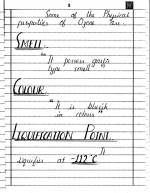 Some of the Physical
properties of Ozone are.
SMELL:
"It possess garlic
type smell"
COLOUR
"It is bluish
in colour"
LIQUIFICATION POINT.
It
liquifies at -112°C